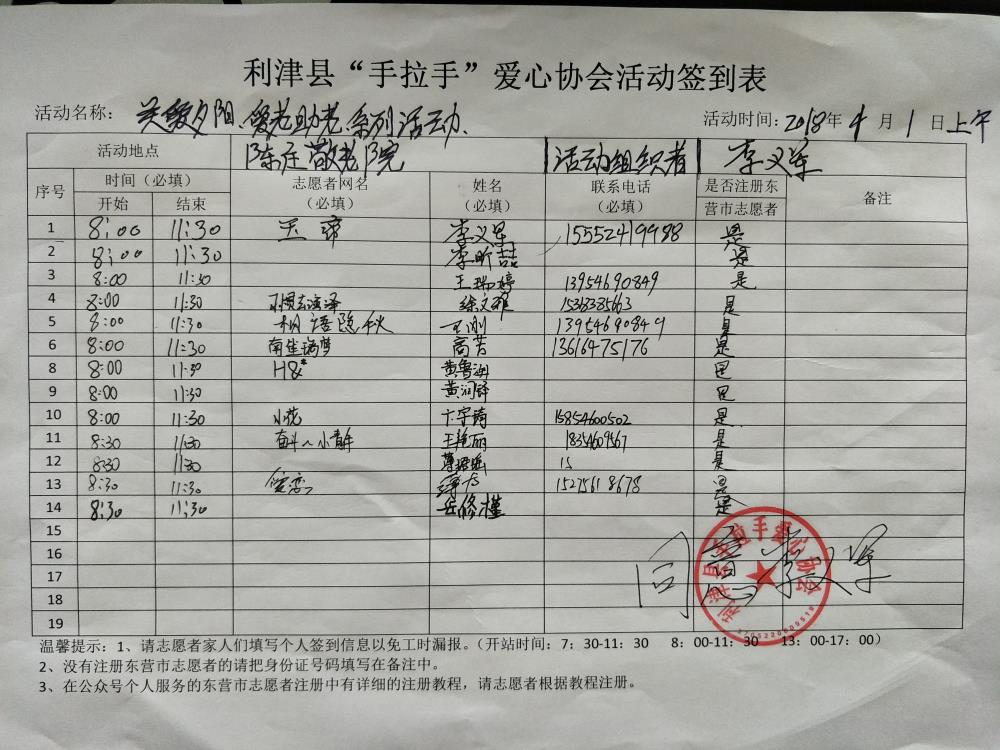 利津县“手拉手”爱心协会活动签到表
活动名称： 关爱夕阳、爱老助老系列活动、 活动时间：2018年 4 月 1 日上午
活动地点 陈庄敬老院 活动组织者 李义军
序号 时间（必填） 志愿者网名 姓名 联系电话 是否注册东 备注
开始 结束 （必填） （必填） （必填） 营市志愿者
1 8:00 11:30 李义军 15552419988 是
2 8:00 11:30 李昕喆 是
3 8:00 11:30 王瑞婷 13954690849 是
4 8:00 11:30 徐文雅 15318385663 是
5 8:00 11:30 相语随秋 王刚 13954690849 是
6 8:00 11:30 南笙瑞梦 高芳 13616475176 是
8 8:00 11:30 H&* 是
9 8:00 11:30 黄润铎 是
10 8:00 11:30 小花 卞宇琦 15854600502 是
11 8:30 11:30 奋斗～小青年 王艳丽 18354609567 是
12 8:30 11:30 15 是
13 8:30 11:30 15275618678 是
14 8:30 11:30 岳修槿 是
15
16 同意 李义军
17
18
19
利津县手拉手爱心协会
温馨提示：1、请志愿者家人们填写个人签到信息以免工时漏报。（开站时间：7：30-11：30 8：00-11：30 13：00-17：00）
2、没有注册东营市志愿者的请把身份证号码填写在备注中。
3、在公众号个人服务的东营市志愿者注册中有详细的注册教程，请志愿者根据教程注册。